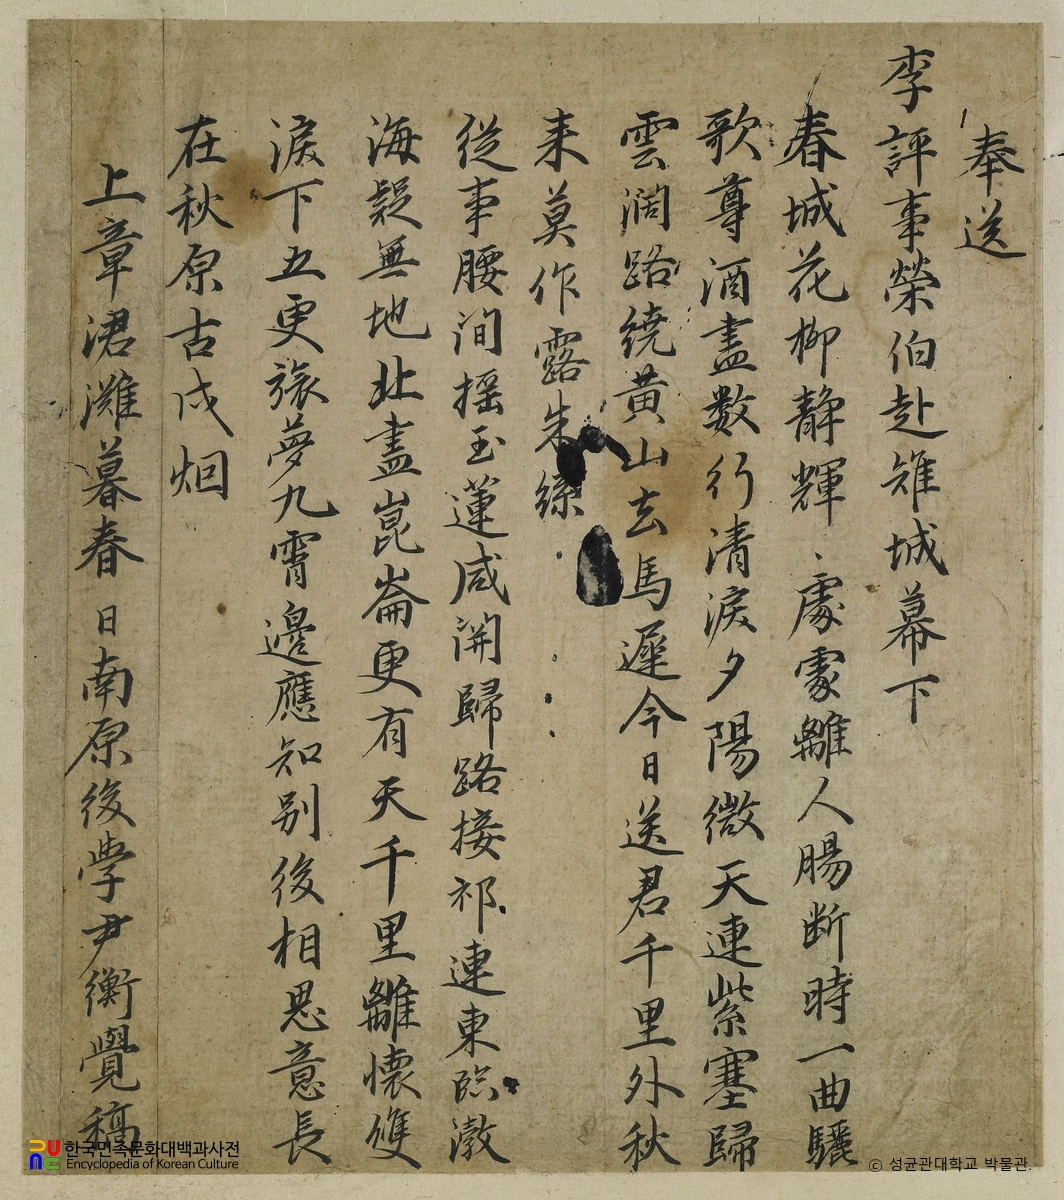 奉送
李評事榮伯赴雉城幕下
春城花柳靜輝、處處離人腸断時一曲驪
歌尊酒盡數行清淚夕陽微天連紫塞歸
雲濶路繞黄山去馬遲今日送君千里外秋
来莫作露朱絲
從事腰間揺玉蓮咸関歸路接祁連東臨渤
海疑無地北盡崑崙更有天千里離懷雙
淚下五更旅夢九霄邊應知别後相思意長
在秋原古戍烟
上章涒灘暮春日南原後學尹衡覺稿
한국민족문화대백과사전
Encyclopedia of Korean Culture
© 성균관대학교 박물관.